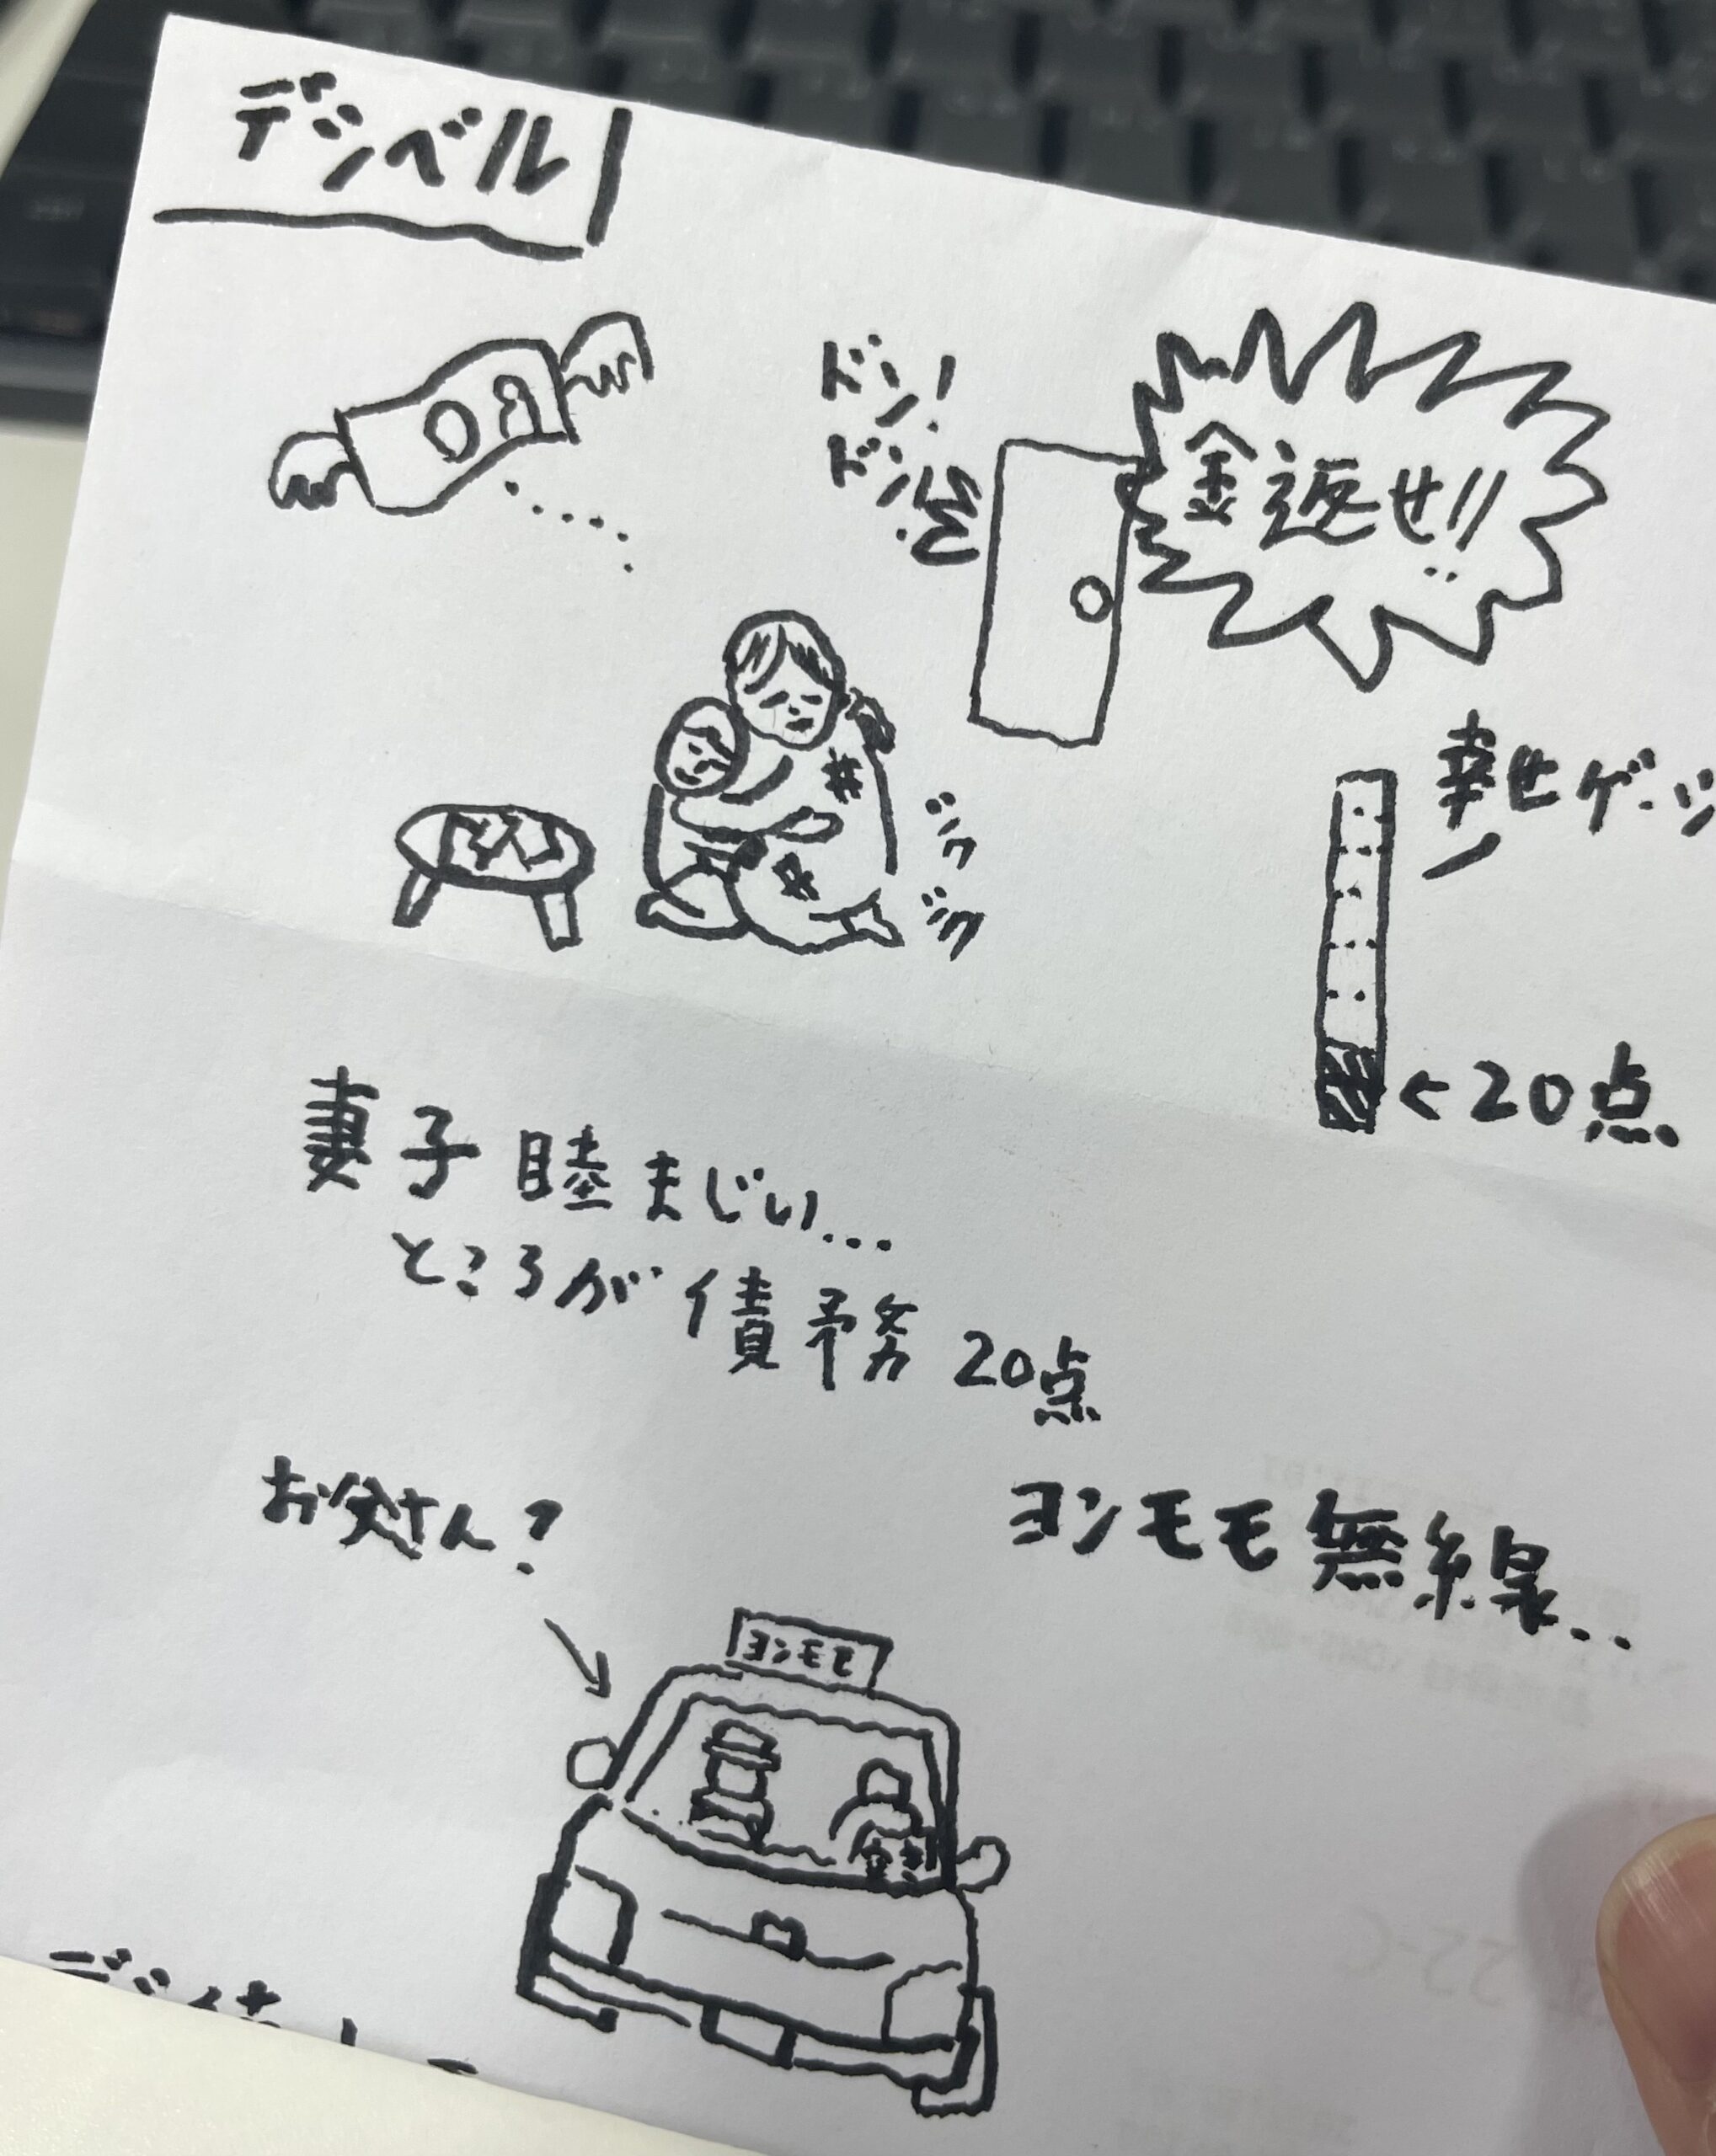 デシベル
ドン!
ドン!
金返せ!!
ジワ
ジワ
幸せゲージ
<20点
妻子睦まじい...
ところが債務20点
お父さん?
ヨンモモ無線..
ヨンモモ
空き